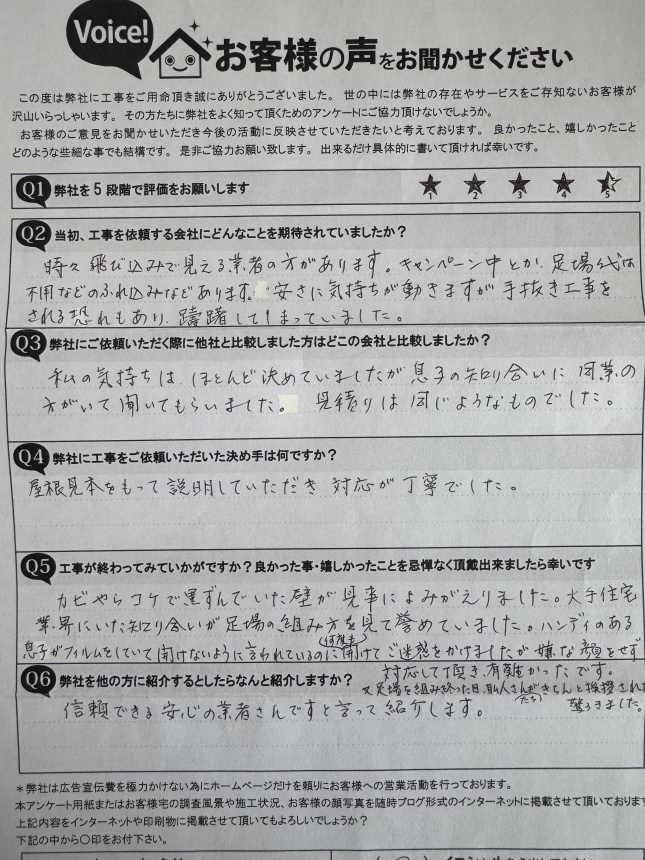 Voice!
お客様の声をお聞かせください
この度は弊社に工事をご用命頂き誠にありがとうございました。 世の中には弊社の存在やサービスをご存知ないお客様が
沢山いらっしゃいます。 その方たちに弊社をよく知って頂くためのアンケートにご協力頂けないでしょうか。
お客様のご意見をお聞かせいただき今後の活動に反映させていただきたいと考えております。 良かったこと、嬉しかったこと
どのような些細な事でも結構です。 是非ご協力お願い致します。 出来るだけ具体的に書いて頂ければ幸いです。
Q1 弊社を5段階で評価をお願いします
1 2 3 4 5
Q2 当初、工事を依頼する会社にどんなことを期待されていましたか?
時々飛び込みで見える業者の方があります。キャンペーン中とか、足場代は
不用などのふれ込みなどあります。安さに気持ちが動きますが手抜き工事を
される恐れもあり、躊躇してしまっていました。
Q3 弊社にご依頼いただく際に他社と比較しました方はどこの会社と比較しましたか?
私の気持ちは、ほとんど決めていましたが息子の知り合いに同業の
方がいて聞いてもらいました。 見積りは同じようなものでした。
Q4 弊社に工事をご依頼いただいた決め手は何ですか?
屋根見本をもって説明していただき対応が丁寧でした。
Q5 工事が終わってみていかがですか?良かった事・嬉しかったことを忌憚なく頂戴出来ましたら幸いです
カビやらコケで黒ずんでいた壁が見事によみがえりました。大手住宅
業界にいた知り合いが足場の組み方を見て誉めていました。ハンディのある
息子がフィルムをしていて開けないように言われているのに(何度も)開けてご迷惑をかけましたが嫌な顔をせず
対応して頂き、有難かったです。
又足場を組み終った日、職人さん(たち)がきちんと挨拶され
驚きました。
Q6 弊社を他の方に紹介するとしたらなんと紹介しますか?
信頼できる安心の業者さんですと言って紹介します。
*弊社は広告宣伝費を極力かけない為にホームページだけを頼りにお客様への営業活動を行っております。
本アンケート用紙またはお客様宅の調査風景や施工状況、お客様の顔写真を随時ブログ形式のインターネットに掲載させて頂いております
上記内容をインターネットや印刷物に掲載させて頂いてもよろしいでしょうか?
下記の中から〇印をお付下さい。